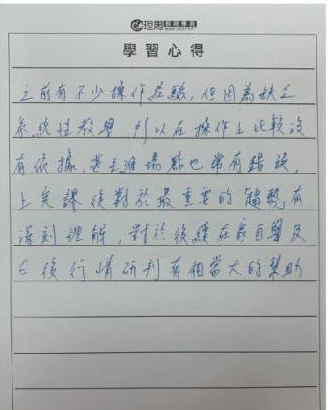 理周教育學苑
學習心得
之前有不少操作經驗,但因為缺乏
系統性教學,所以在操作上比較沒
有依據,甚至進場點也常有錯誤,
上完課後對於最重要的趨勢有
深刻理解,對於後續在家自學及
日後行情研判有相當大的幫助